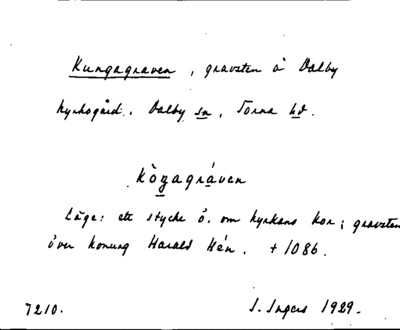 Kungagraven, gravsten å Dalby
kyrkogård. Dalby sn, Torna hd.
kòzagráven
Läge: ett stycke ö. om kyrkans kor; gravsten
över konung Harald Hén. + 1086.
7210. I. Ingers 1929.